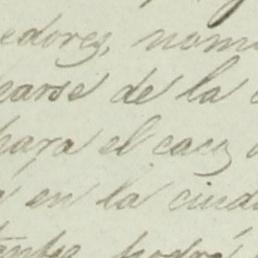 edores, nom
arse de la
para el caso
en la ciuda
podrá